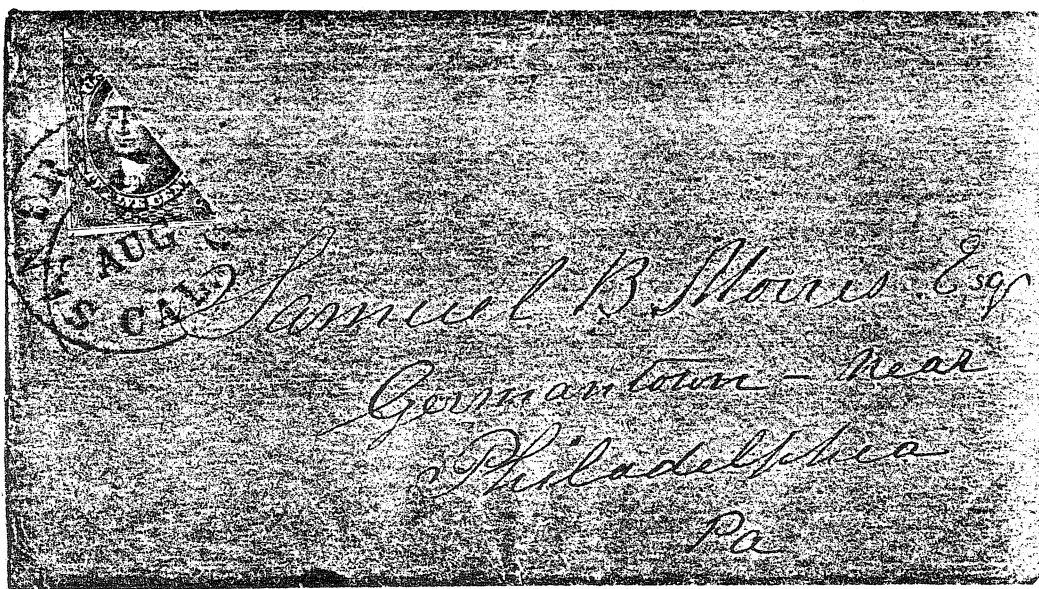 AUG
CAL
Samuel B. Morris Esqr
Germantown - near
Philadelphia
Pa